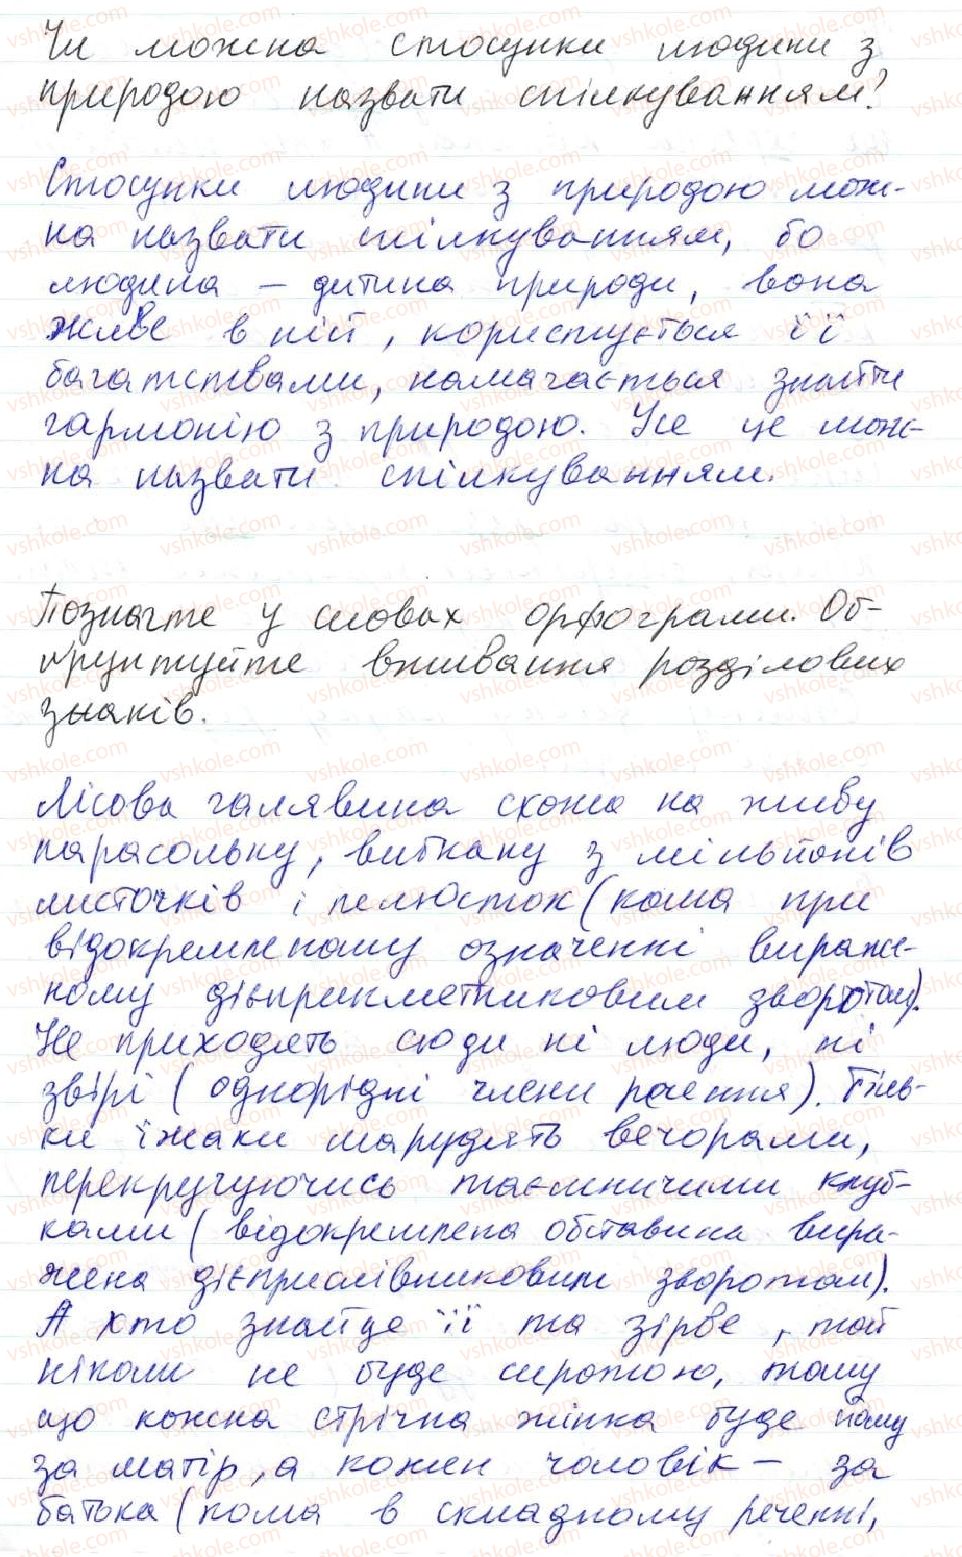 Чи можна стосунки людини з
природою назвати спілкуванням?
Стосунки людини з природою мож-
на назвати спілкуванням, бо
людина – дитина природи, вона
живе в ній, користується її
багатствами, намагається знайти
гармонію з природою. Усе це мож-
на назвати спілкуванням.
Позначте у словах орфограми. Об-
ґрунтуйте вживання розділових
знаків.
Лісова галявина схожа на живу
парасольку, виткану з мільйонів
листочків і пелюсток (кома при
відокремленому означенні вираже-
ному дієприкметниковим зворотом).
Не приходять сюди ні люди, ні
звірі (однорідні члени речення). Тіль-
ки їжаки марудять вечорами,
перекручуючись таємничими клуб-
ками (відокремлена обставина вира-
жена дієприслівниковим зворотом).
А хто знайде її та зірве, той
ніколи не буде сиротою, тому
що кожна стрічна жінка буде йому
за матір, а кожен чоловік – за
батька (кома в складному реченні,